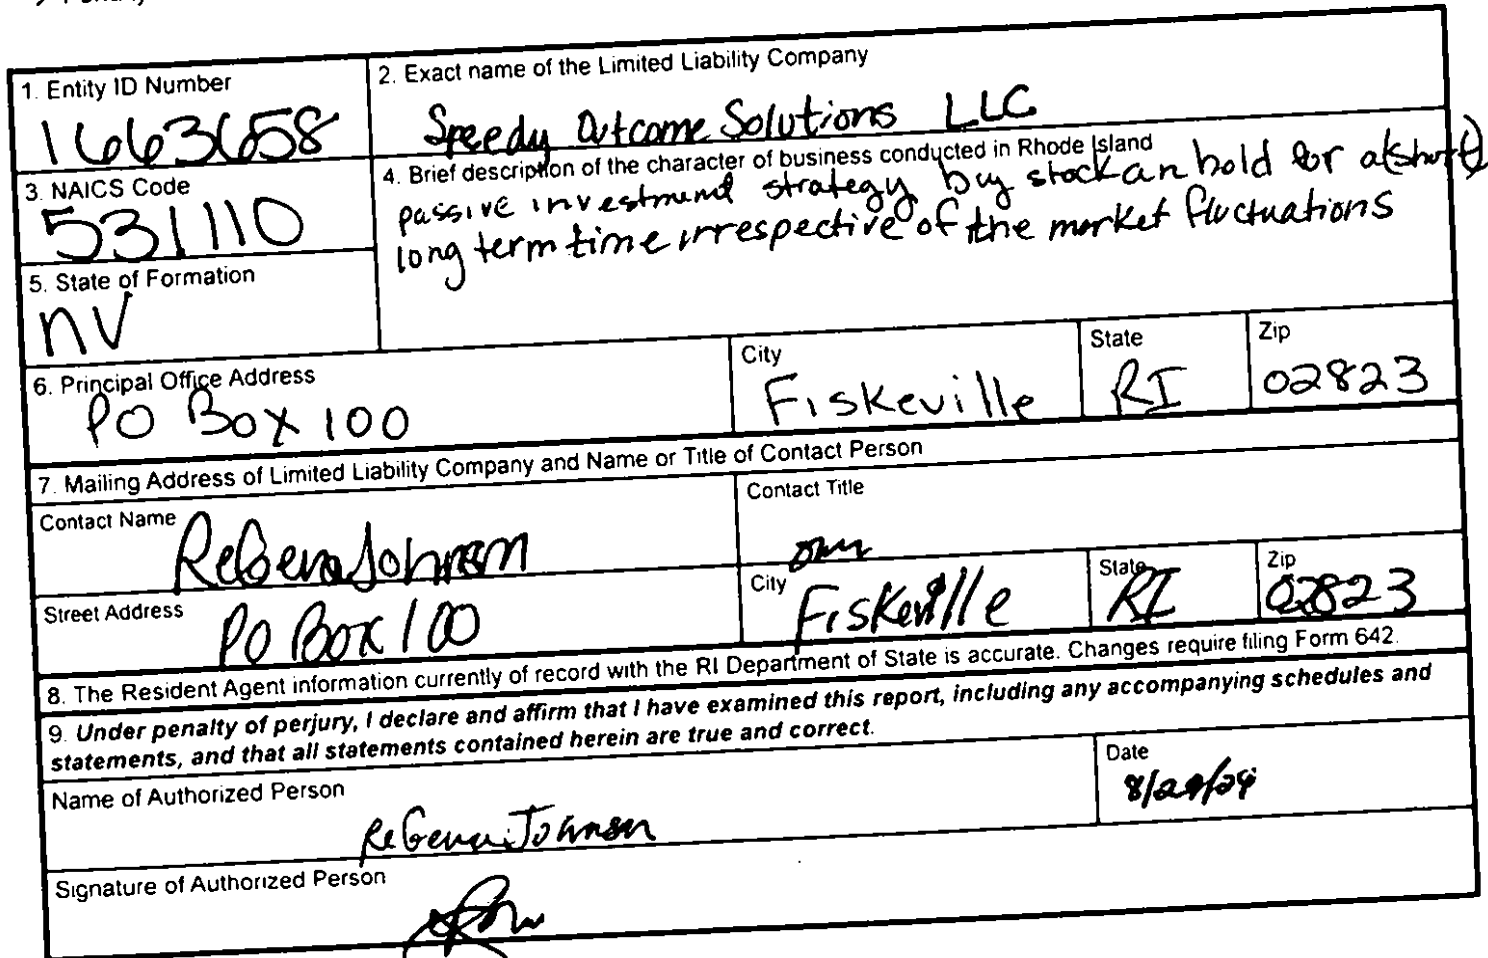 1. Entity ID Number
1663658
2. Exact name of the Limited Liability Company
Speedy Outcome Solutions LLC
3. NAICS Code
531110
4. Brief description of the character of business conducted in Rhode Island
passive investment strategy buy stock an hold for a (short)
long term time irrespective of the market fluctuations
5. State of Formation
NV
6. Principal Office Address
PO Box 100
City
Fiskeville
State
RI
Zip
02823
7. Mailing Address of Limited Liability Company and Name or Title of Contact Person
Contact Name
ReGena Johnson
Contact Title
Street Address
PO Box 100
City
Fiskeville
State
RI
Zip
02823
8. The Resident Agent information currently of record with the RI Department of State is accurate. Changes require filing Form 642.
9. Under penalty of perjury, I declare and affirm that I have examined this report, including any accompanying schedules and
statements, and that all statements contained herein are true and correct.
Name of Authorized Person
ReGena Johnson
Date
Signature of Authorized Person